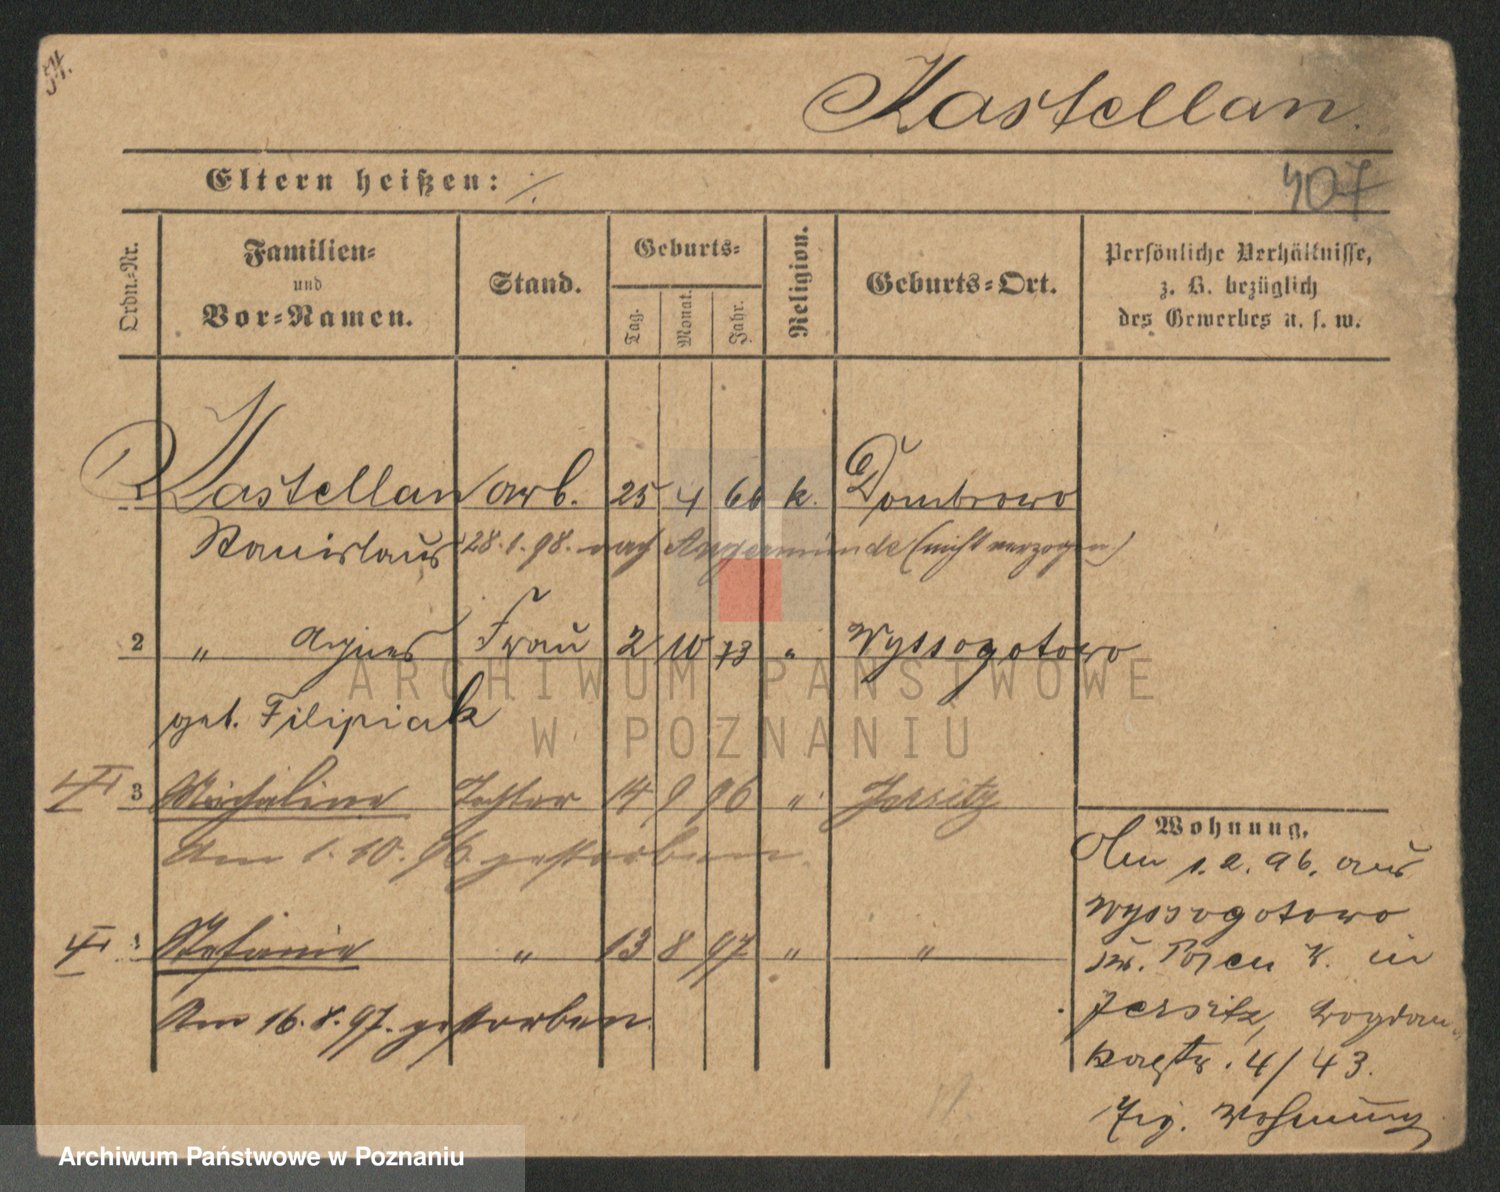 54.
Kastellan.
407
Eltern heißen: ./.
Ordn.-Nr.
Familien-
und
Vor-Namen.
Stand.
Geburts-
Tag.
Monat.
Jahr.
Religion.
Geburts-Ort.
Persönliche Verhältnisse,
z. B. bezüglich
des Gewerbes u. s. w.
1 Kastellan arb. 25 4 66 k. Dombrowo
Stanislaus 28.1.98. nach Angermünde (nicht verzogen)
2 " Agnes Frau 2 10 73 " Wyssogotowo
geb. Filipiak
3 Michaline Tochter 14 9 96 " Jersitz
Am 1.10.96. gestorben.
4 Stefanie " 13 8 97 " "
Am 16.8.97. gestorben.
Wohnung.
Am 1.2.96. aus
Wyssogotowo
Kr. Posen W. in
Jersitz,
4/43.
Wohnung
ARCHIWUM PAŃSTWOWE
W POZNANIU
Archiwum Państwowe w Poznaniu